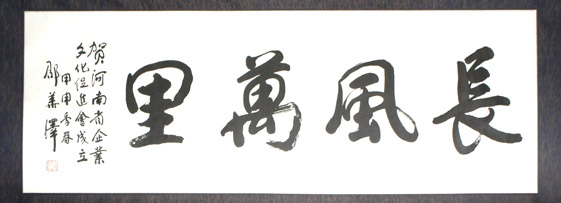 長風萬里
賀河南省企業
文化促進會成立
甲申季春
邵華澤